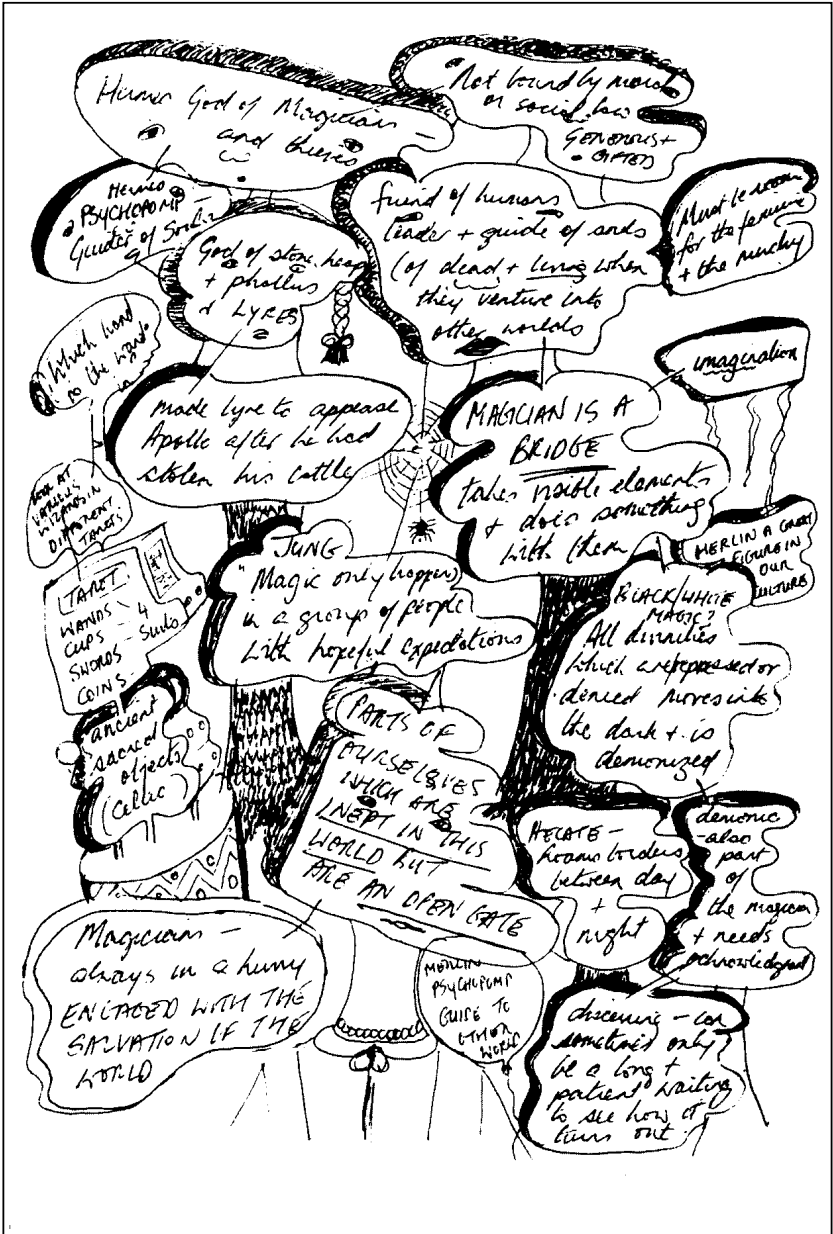 Hermes God of Magicians –
and thieves
Not bound by moral
or social law
GENEROUS +
GIFTED
HERMES
PSYCHOPOMP –
Guider of Souls
God of stone heap
+ phallus
+ LYRES
friend of humans
leader + guide of souls
(of dead + living when
they venture into
other worlds
Must be room
for the feminine
+ the
Which hand
is the wand
in
made lyre to appease
Apollo after he had
stolen his cattle
MAGICIAN IS A
BRIDGE
takes visible elements
+ does something
with them
imagination
LOOK AT
VARIOUS
WIZARDS IN
DIFFERENT
TAROTS
TAROT
WANDS
CUPS
SWORDS
COINS
4
Suits
JUNG
" Magic only happens
in a group of people
with hopeful expectations
MERLIN A GREAT
FIGURE IN
OUR
CULTURE
BLACK/WHITE
MAGIC?
All divinities
which are repressed or
denied moves into
the dark + is
demonized
ancient
sacred
objects
(Celtic)
PARTS OF
OURSELVES
WHICH ARE
INEPT IN THIS
WORLD BUT
ARE AN OPEN GATE
HECATE –
roams borders
between day
+
night
demonic
-also
part
of
the magician
+ needs
acknowledged
Magicians –
always in a hurry
ENGAGED WITH THE
SALVATION OF THE
WORLD
MERLIN
PSYCHOPOMP
GUIDE TO
OTHER
WORLD
discerning – can
sometimes only
be a long +
patient waiting
to see how it
turns out